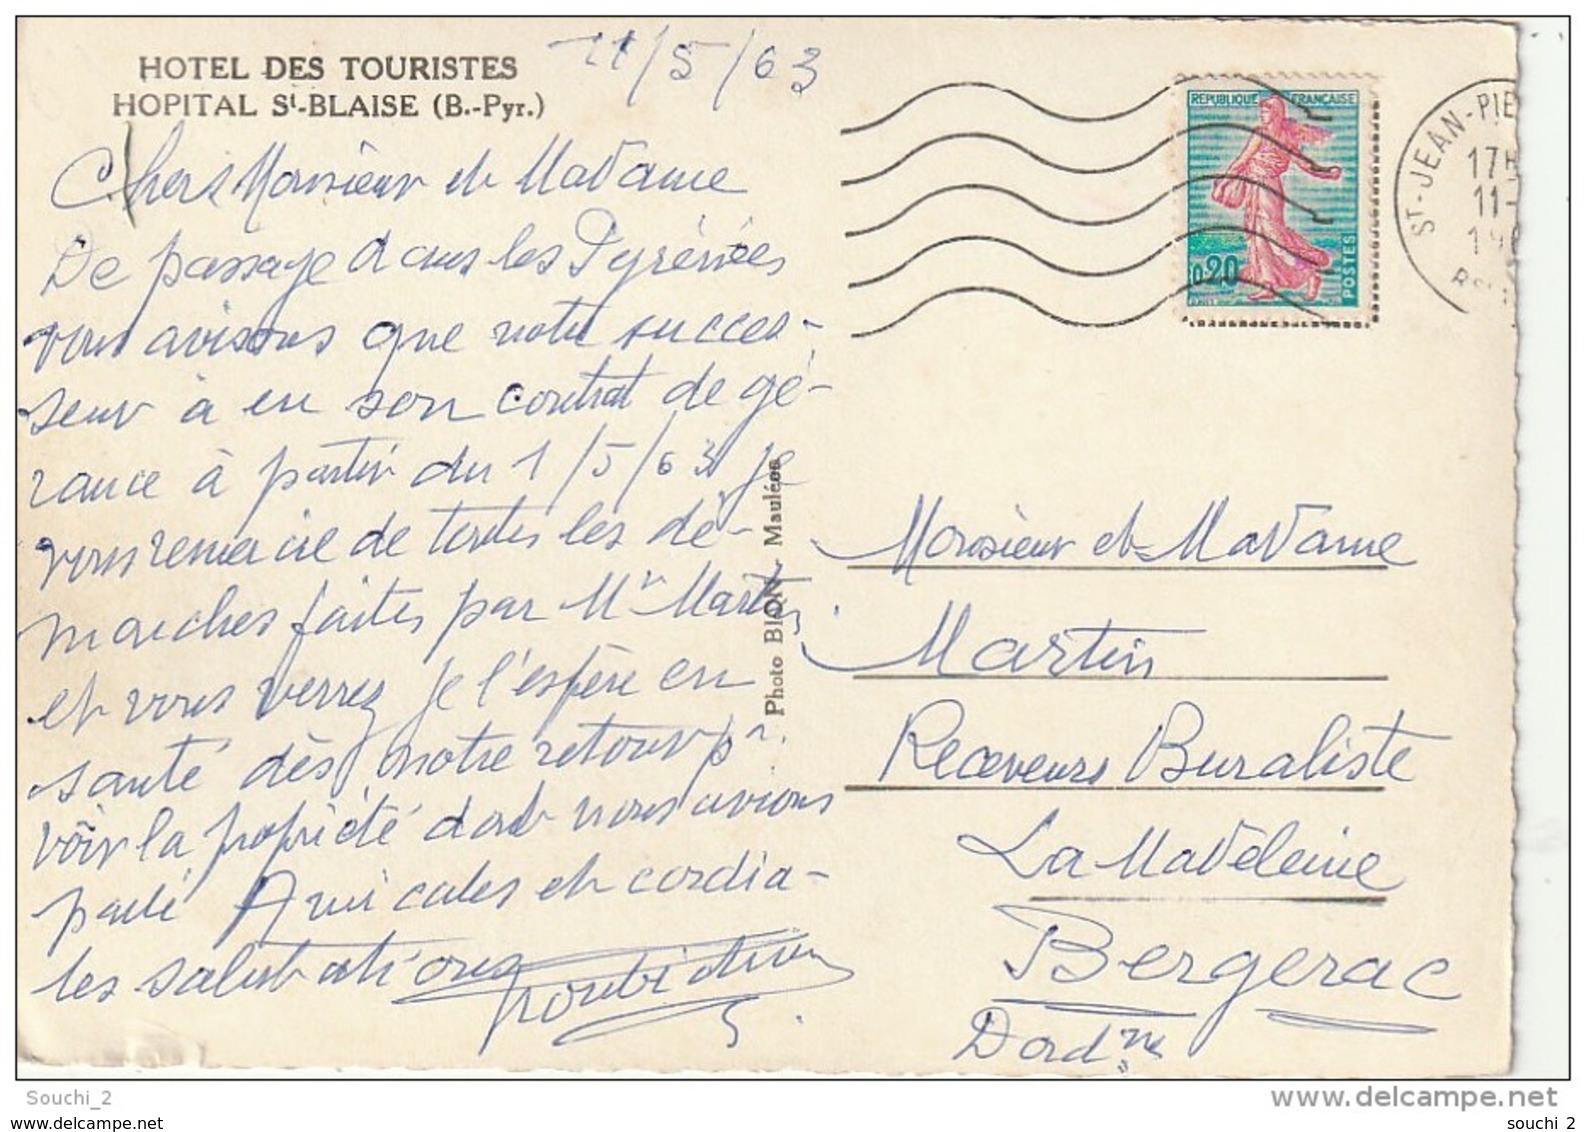 HOTEL DES TOURISTES
HOPITAL St-BLAISE (B.-Pyr.)
11/5/63
Chers Monsieur et Madame
De passage dans les Pyrénées
vous avisons que notre succes-
seur à eu son contrat de gé-
rance à partir du 1/5/63 je
vous remercie de toutes les dé-
marches faites par Mr Martin
et vous verrez je l'espère en
santé dès notre retour pr.
voir la propriété dont nous avions
parlé Amicales et cordia-
les salutations
Photo BION - Mauléon
REPUBLIQUE FRANÇAISE
0,20
POSTES
ST-JEAN-PIE
17H
11-
196
Monsieur et Madame
Martin
Receveurs Buraliste
La Madeleine
Bergerac
Dordne
Souchi_2
www.delcampe.net
souchi_2
souchi_2